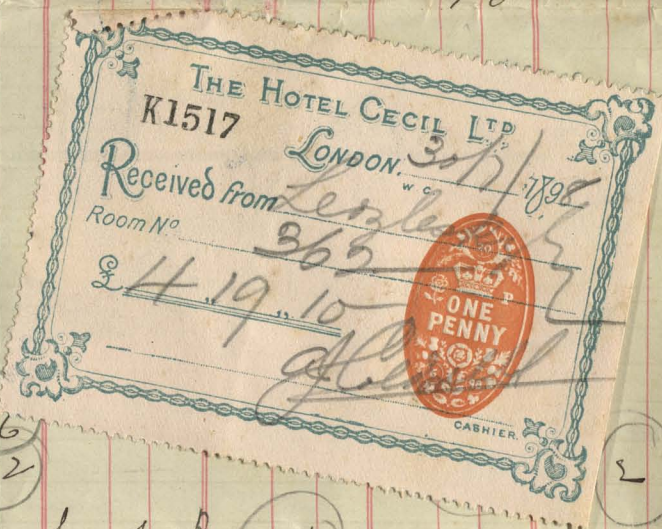 THE HOTEL CECIL LTD
K1517
LONDON, W C 30/7/1898
Received from
Room No 362
£ 4 " 19 " 10
ONE
PENNY
CASHIER.